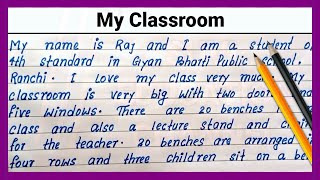 My Classroom
My name is Raj and I am a student o
4th standard in Gyan Bharti Public School,
Ranchi. I love my class very much. My
classroom is very big with two doors and
five windows. There are 20 benches in
class and also a lecture stand and
for the teacher. 20 benches are arranged i
four rows and three children sit on a be